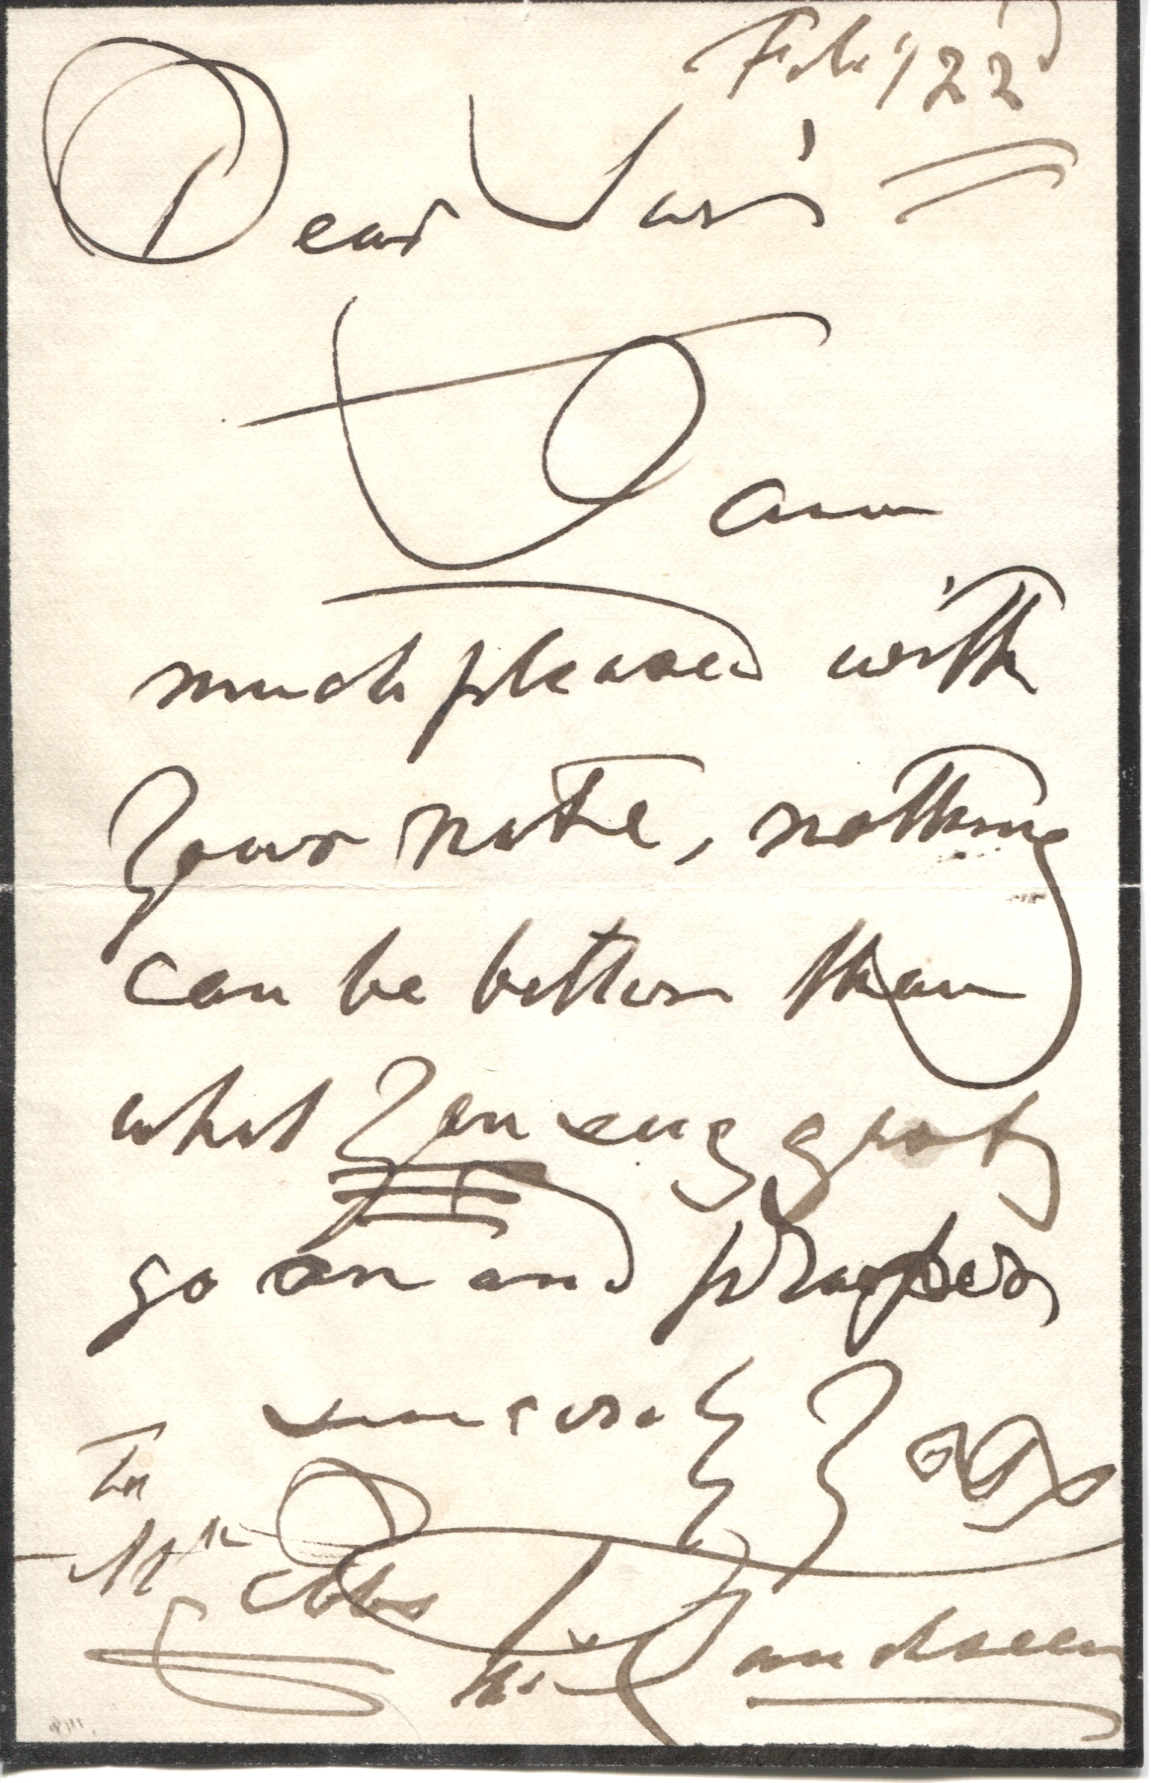 Feb: 22d
Dear Sir
I am
much pleased with
your note, nothing
can be better than
what you suggest,
go on and prosper
sincerely yours
To
Mr
E Landseer